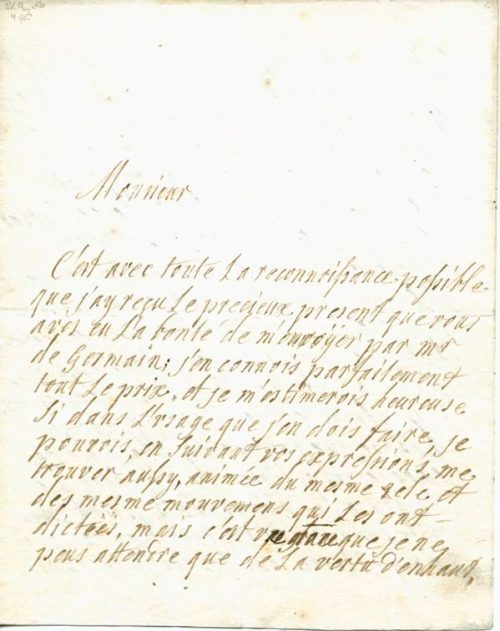 Monsieur
C'est avec toute La reconnoissance possible
que j'ay reçu Le precieux present que vous
avés eu La bonté de m'envoÿer par mr
de Germain; j'en connois parfaitement
tout Le prix, et je m'estimerois heureuse
Si dans L'usage que j'en dois faire, je
pouvois, en Suivant vos expressions, me
trouver aussy, animée du mesme zele et
des mesme mouvemens qui Les ont
dictées, mais c'est que je ne
peus attendre que de La vertu d'enhaut,